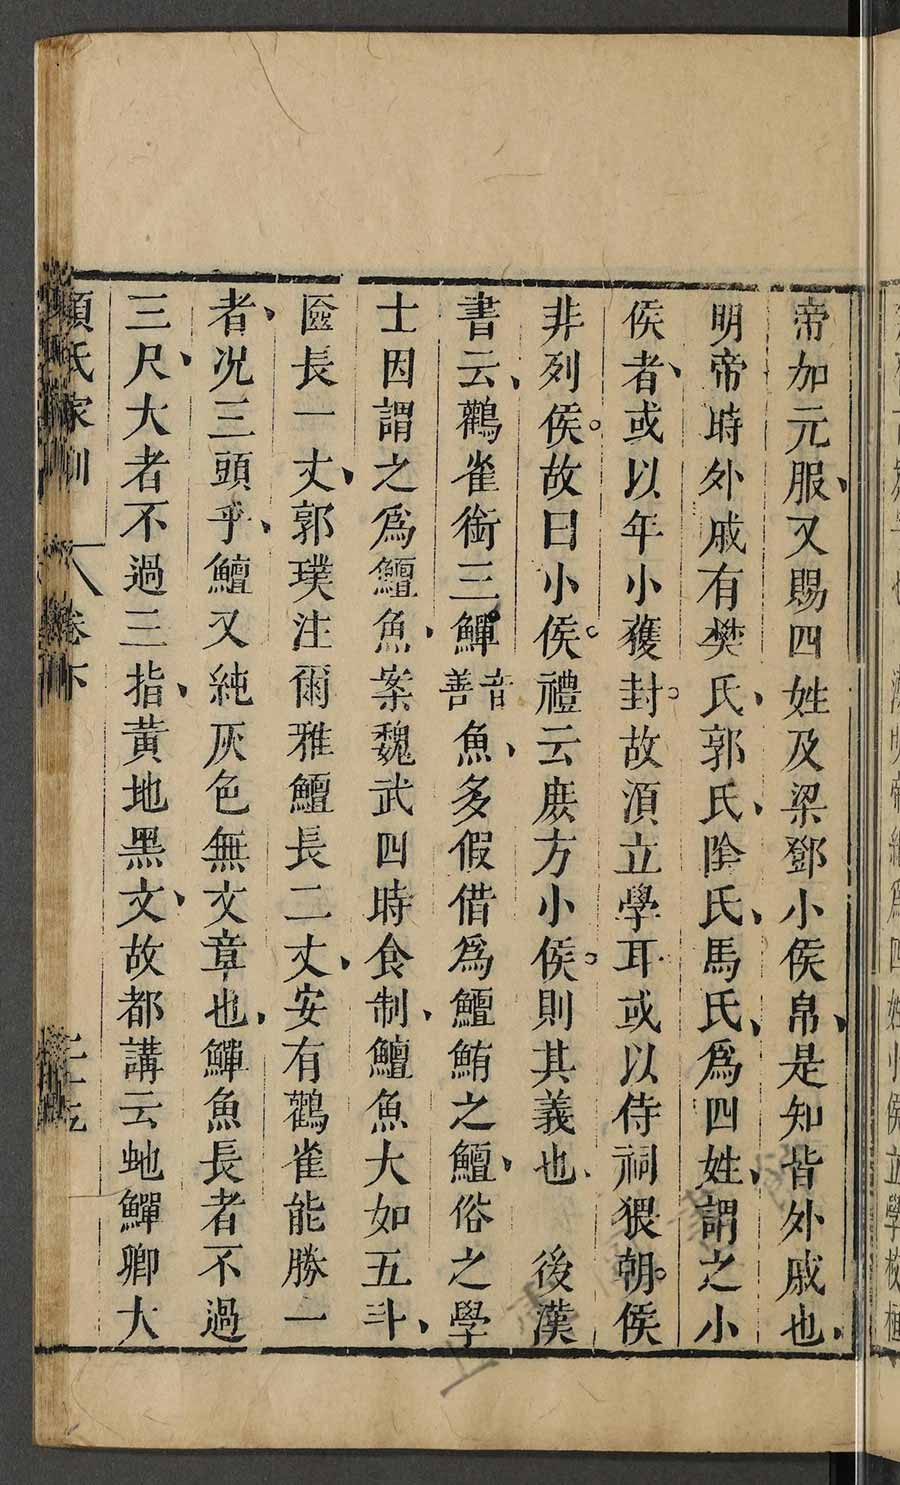 帝加元服又賜四姓及梁鄧小侯帛是知皆外戚也
明帝時外戚有樊氏郭氏陰氏馬氏爲四姓謂之小
侯者或以年小獲封故須立學耳或以侍祠猥朝侯
非列侯故曰小侯禮云庶方小侯則其義也 後漢
書云鸛雀銜三鱓音善魚多假借爲鱣鮪之鱣俗之學
士因謂之爲鱣魚案魏武四時食制鱣魚大如五斗
匳長一丈郭璞注爾雅鱣長二丈安有鸛雀能勝一
者况三頭乎鱣又純灰色無文章也鱓魚長者不過
三尺大者不過三指黃地黑文故都講云虵鱓卿大
顏氏家訓 卷下